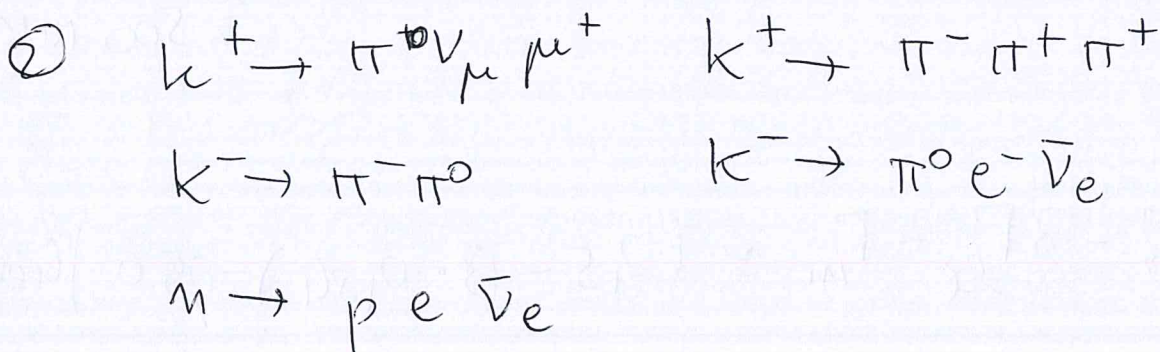 ② K⁺ → π⁰ ν_μ μ⁺ K⁺ → π⁻ π⁺ π⁺
K⁻ → π⁻ π⁰ K⁻ → π⁰ e⁻ ν̄_e
n → p e ν_e